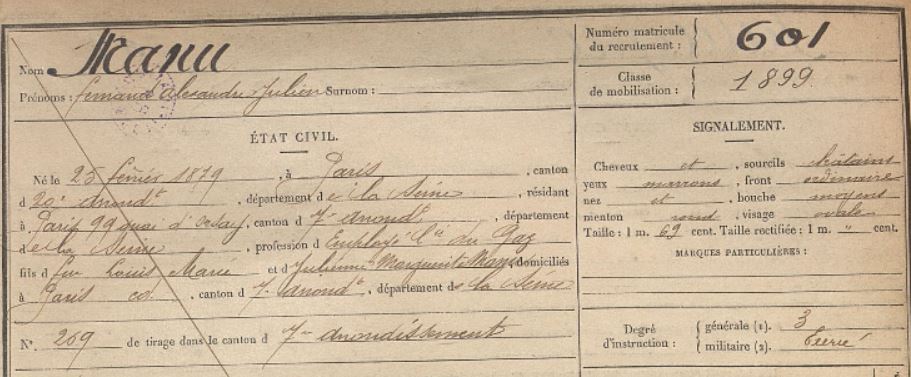 Nom : Manu
Prénoms : Fernand Alexandre Julien Surnom :
Numéro matricule
du recrutement : 601
Classe
de mobilisation : 1899
ÉTAT CIVIL.
Né le 25 février 1879, à Paris, canton
d 20e arrondt, département de la Seine, résidant
à Paris 99 quai d'Orsay, canton d 7e arrondt, département
de la Seine, profession d Employé Cie du Gaz
fils d feu Louis Marie et d Julienne Marguerite domiciliés
à Paris, canton d 7e arrondt, département de la Seine
N°. 269 de tirage dans le canton d 7e arrondissement
SIGNALEMENT.
Cheveux et, sourcils châtains
yeux marrons, front ordinaire
nez et, bouche moyens
menton rond, visage ovale
Taille : 1 m. 69 cent. Taille rectifiée : 1 m. " cent.
MARQUES PARTICULIÈRES :
Degré
d'instruction : { générale (1). 3
{ militaire (2). Exercé